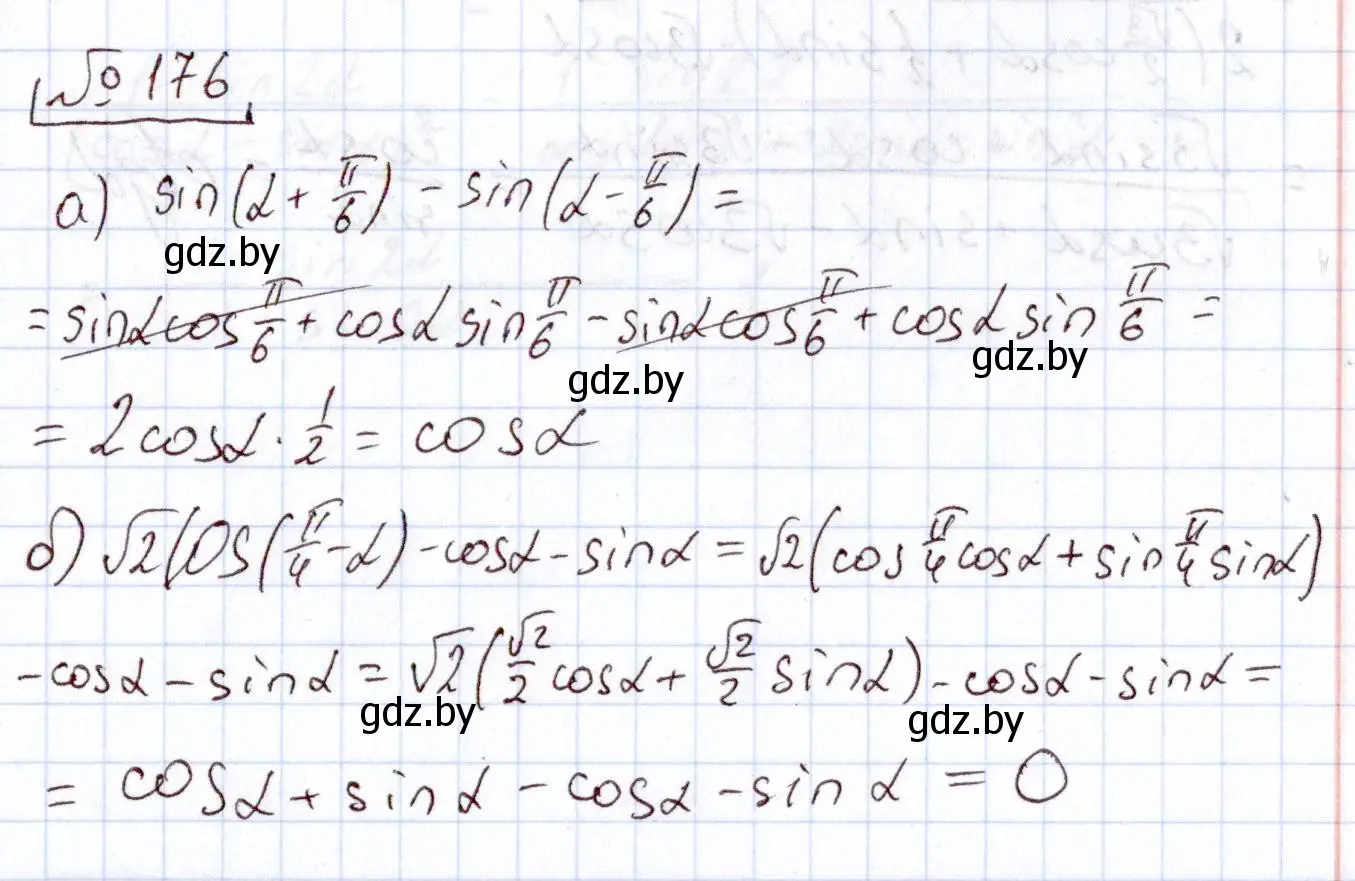 № 176
а) sin(α + π/6) - sin(α - π/6) =
gdz.by
= sinα cos π/6 + cosα sin π/6 - sinα cos π/6 + cosα sin π/6 =
gdz.by gdz.by
= 2cosα · 1/2 = cosα
б) √2 cos(π/4 - α) - cosα - sinα = √2(cos π/4 cosα + sin π/4 sinα)
- cosα - sinα = √2(√2/2 cosα + √2/2 sinα) - cosα - sinα =
gdz.by gdz.by
= cosα + sinα - cosα - sinα = 0